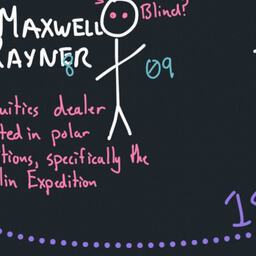 MAXWELL
RAYNER
Blind?
8
09
uities dealer
ted in polar
tions, specifically the
lin Expedition
19